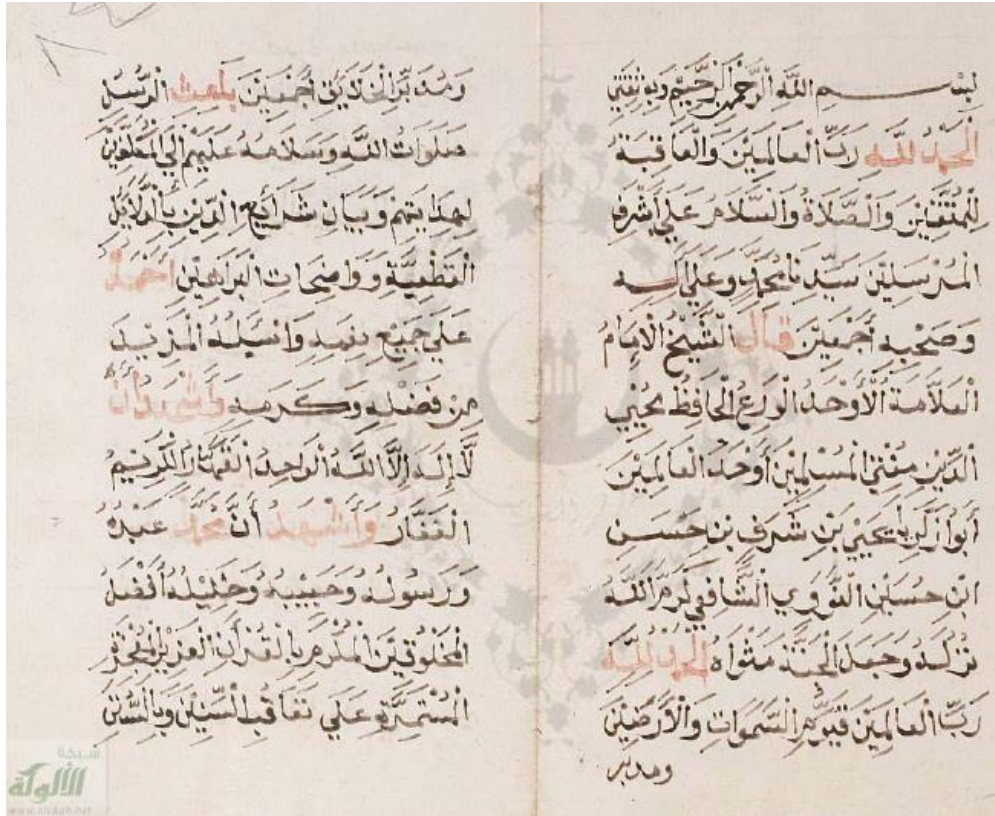 بِسْمِ اللَّهِ الرَّحْمٰنِ الرَّحِيْمِ وَبِهِ ثِقَتِي
الْحَمْدُ لِلَّهِ رَبِّ الْعَالَمِيْنَ وَالْعَاقِبَةُ
لِلْمُتَّقِيْنَ وَالصَّلَاةُ وَالسَّلَامُ عَلَي أَشْرَفِ
الْمُرْسَلِيْنَ سَيِّدِنَا مُحَمَّدٍ وَعَلَي آلِهِ
وَصَحْبِهِ أَجْمَعِيْنَ قَالَ الشَّيْخُ الْإِمَامُ
الْعَلَّامَةُ الْأَوْحَدُ الْوَرَعُ الْحَافِظُ مُحْيِي
الدِّيْنِ مُفْتِي الْمُسْلِمِيْنَ أَوْحَدُ الْعَالَمِيْنَ
أَبُوا زَكَرِيا يَحْيَي بْنِ شَرَفِ بْنِ حَسَنِ
ابْنِ حُسَيْنِ النَّوَوِي الشَّافِعِي كَرَّمَ اللَّهُ
نُزُلَهُ وَجَعَلَ الْجَنَّةَ مَثْوَاهُ الْحَمْدُ لِلَّهِ
رَبِّ الْعَالَمِيْنَ قَيُّوْمِ السَّمَوَاتِ وَالْأَرَضِيْنَ
ومدبر
وَمُدَبِّرِ الْخَلَايِقِ أَجْمَعِيْنَ بَاعِثِ الرُّسُلِ
صَلَوَاتُ اللَّهِ وَسَلَامُهُ عَلَيْهِمْ إِلَي الْمُكَلَّفِيْنَ
لِهِدَايَتِهِمْ وَبَيَانِ شَرَائِعِ الدِّيْنِ بِالدَّلَائِلِ
الْقَطْعِيَّةِ وَوَاضِحَاتِ الْبَرَاهِيْنِ أَحْمَدُهُ
عَلَي جَمِيْعِ نِعَمِهِ وَاسْئَلُهُ الْمَزِيْدَ
مِنْ فَضْلِهِ وَكَرَمِهِ وَأَشْهَدُ أَنْ
لَّا إِلَهَ إِلَّا اللَّهُ الْوَاحِدُ الْقَهَّارُ الْكَرِيْمُ
الْغَفَّارُ وَأَشْهَدُ أَنَّ مُحَمَّدًا عَبْدُهُ
وَرَسُولُهُ وَحَبِيْبُهُ وَخَلِيْلُهُ أَفْضَلُ
الْمَخْلُوْقِيْنَ الْمُكَرَّمِ بِالْقُرْآنِ الْعَزِيْزِ الْمُعْجِزَةِ
الْمُسْتَمِرَّةِ عَلَي تَعَاقُبِ السِّنِيْنَ وَبِالسُّنَنِ
شبكة
الألوكة
www.alukah.net